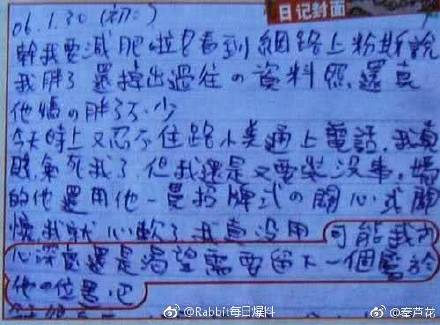 日记封面
06.1.30 (初二)
幹我要減肥啦只看到網路上粉斯說
我胖了還掉出過往の資料照還真
他媽の胖了不少
今天晚上又忍不住跟小美通上電話,我真
賤 我了但我還是又要裝没事.媽
的他還用他一貫招牌式の關心或關
懷.我就心軟了.我真没用 可能我內
心深處還是渴望需要留下一個屬於
他の位置吧
@Rabbit每日爆料
@秦芦花